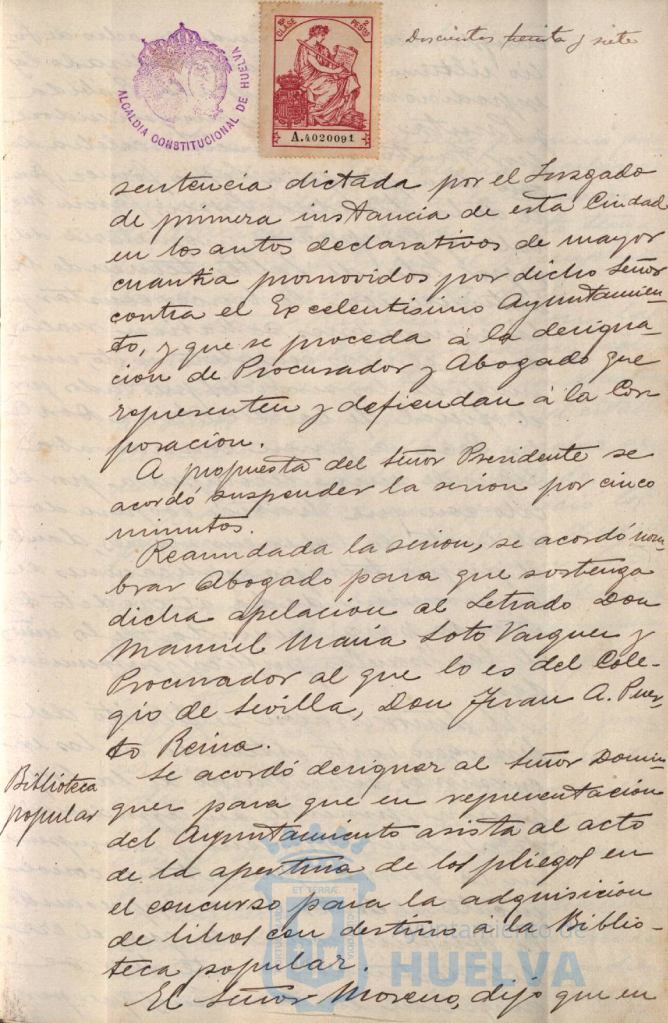 Doscientos treinta y siete
ALCALDIA CONSTITUCIONAL DE HUELVA
6ª CLASE 2 PESETAS
A.4020091
sentencia dictada por el Juzgado
de primera instancia de esta Ciudad
en los autos declarativos de mayor
cuantia promovidos por dicho Señor
contra el Excelentisimo Ayuntamien-
to, y que se proceda á la designa-
cion de Procurador y Abogado que
representen y defiendan á la Cor-
poracion.
A propuesta del Señor Presidente se
acordó suspender la sesion por cinco
minutos.
Reanudada la sesion, se acordó nom-
brar Abogado para que sostenga
dicha apelacion al Letrado Don
Manuel Maria Soto Vazquez y
Procurador al que lo es del Cole-
gio de Sevilla, Don Juan A. Puer-
to Reina.
Biblioteca
popular
Se acordó designar al Señor Domin-
guez para que en representacion
del Ayuntamiento asista al acto
de la apertura de los pliegos en
el concurso para la adquisicion
de libros con destino á la Biblio-
teca popular.
El Señor Moreno, dijo que en
Ayuntamiento de
HUELVA